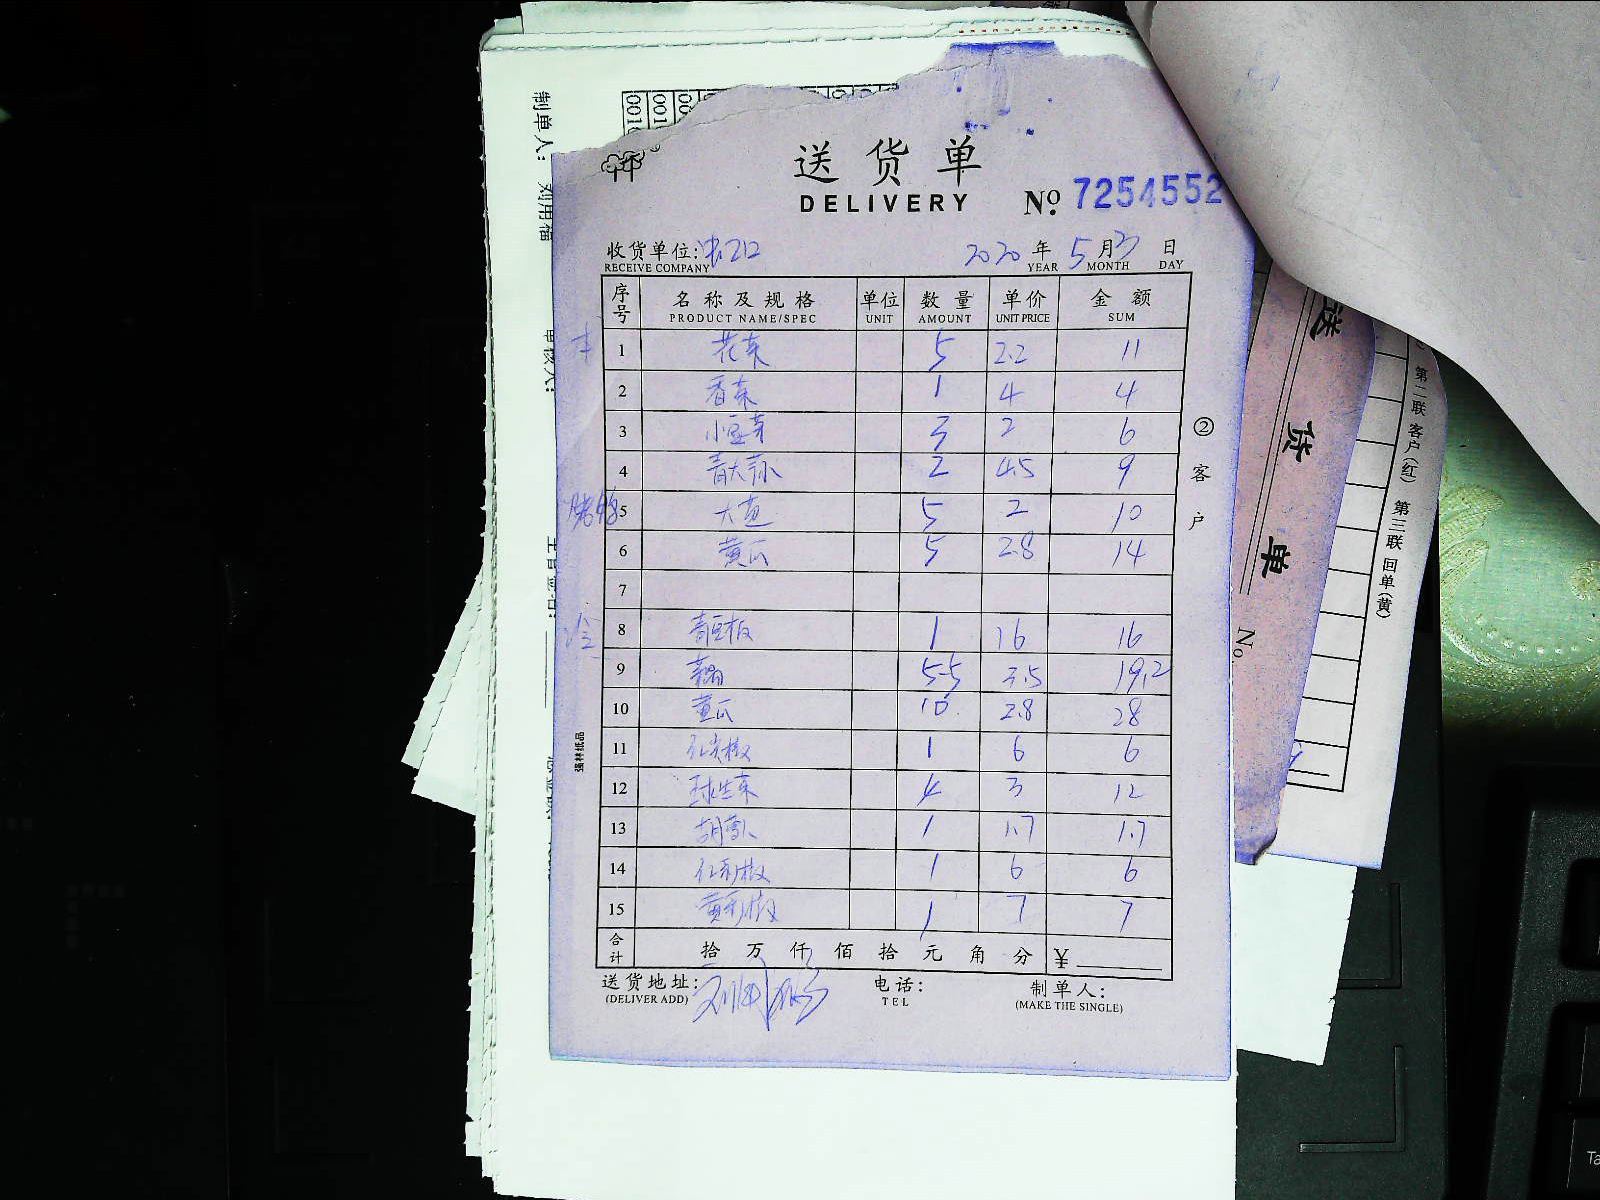 制单人: 刘用福
送货单
DELIVERY
No 7254552
收货单位:
RECEIVE COMPANY
2020 年 5 月 3 日
YEAR MONTH DAY
序号 名称及规格 单位 数量 单价 金额
PRODUCT NAME/SPEC UNIT AMOUNT UNIT PRICE SUM
1 花菜 5 2.2 11
2 香菜 1 4 4
3 小豆芽 3 2 6
4 青大蒜 2 4.5 9
5 大葱 5 2 10
6 黄瓜 5 2.8 14
7
8 1 16 16
9 5.5 3.5 19.2
10 黄瓜 10 2.8 28
11 红尖椒 1 6 6
12 球生菜 4 3 12
13 胡萝卜 1 1.7 1.7
14 红彩椒 1 6 6
15 黄彩椒 1 7 7
合计 拾 万 仟 佰 拾 元 角 分 ¥
送货地址: 电话: 制单人:
(DELIVER ADD) TEL (MAKE THE SINGLE)
② 客户
强林纸品
送货单
No.
第二联 客户(红) 第三联 回单(黄)